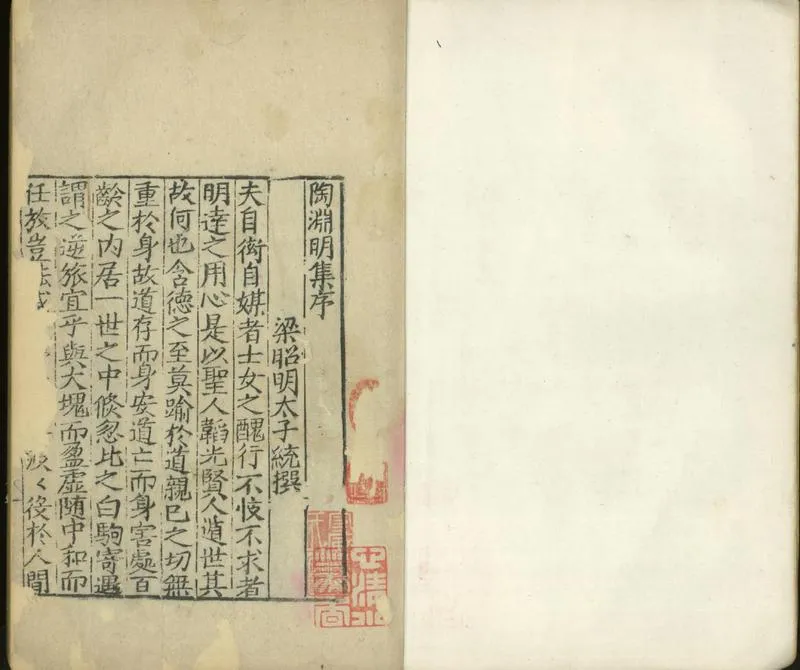 陶淵明集序
梁昭明太子統撰
夫自衒自媒者士女之醜行不忮不求者
明達之用心是以聖人韜光賢人遁世其
故何也含德之至莫踰於道親已之切無
重於身故道存而身安道亡而身害處百
齡之内居一世之中倏忽比之白駒寄遇
謂之逆旅宜乎與大塊而盈虛隨中和而
任放豈能戚 汲々役於人間